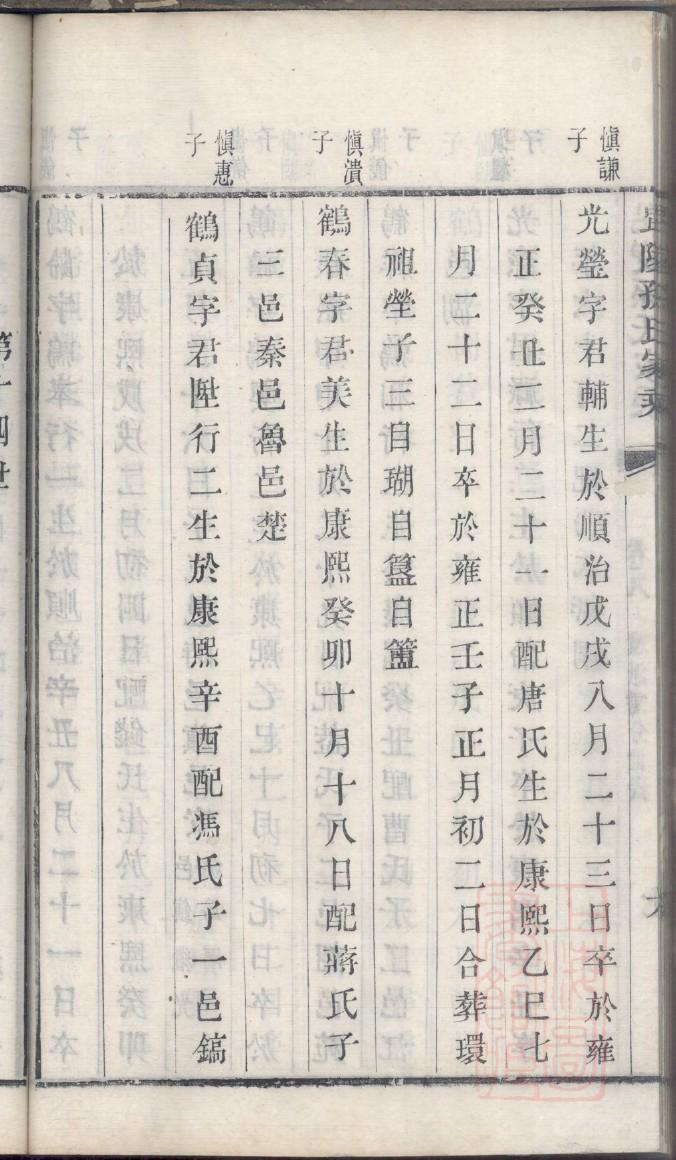 宜陵孫氏家乘
慎謙
子
光瑩字君輔生於順治戊戌八月二十三日卒於雍
正癸丑二月二十一日配唐氏生於康熙乙巳七
月二十二日卒於雍正壬子正月初二日合葬環
祖塋子三自瑚自簋自簠
慎瀆
子
鶴春字君美生於康熙癸卯十月十八日配蔣氏子
三邑秦邑魯邑楚
慎惠
子
鶴貞字君陞行二生於康熙辛酉配馮氏子一邑鎬